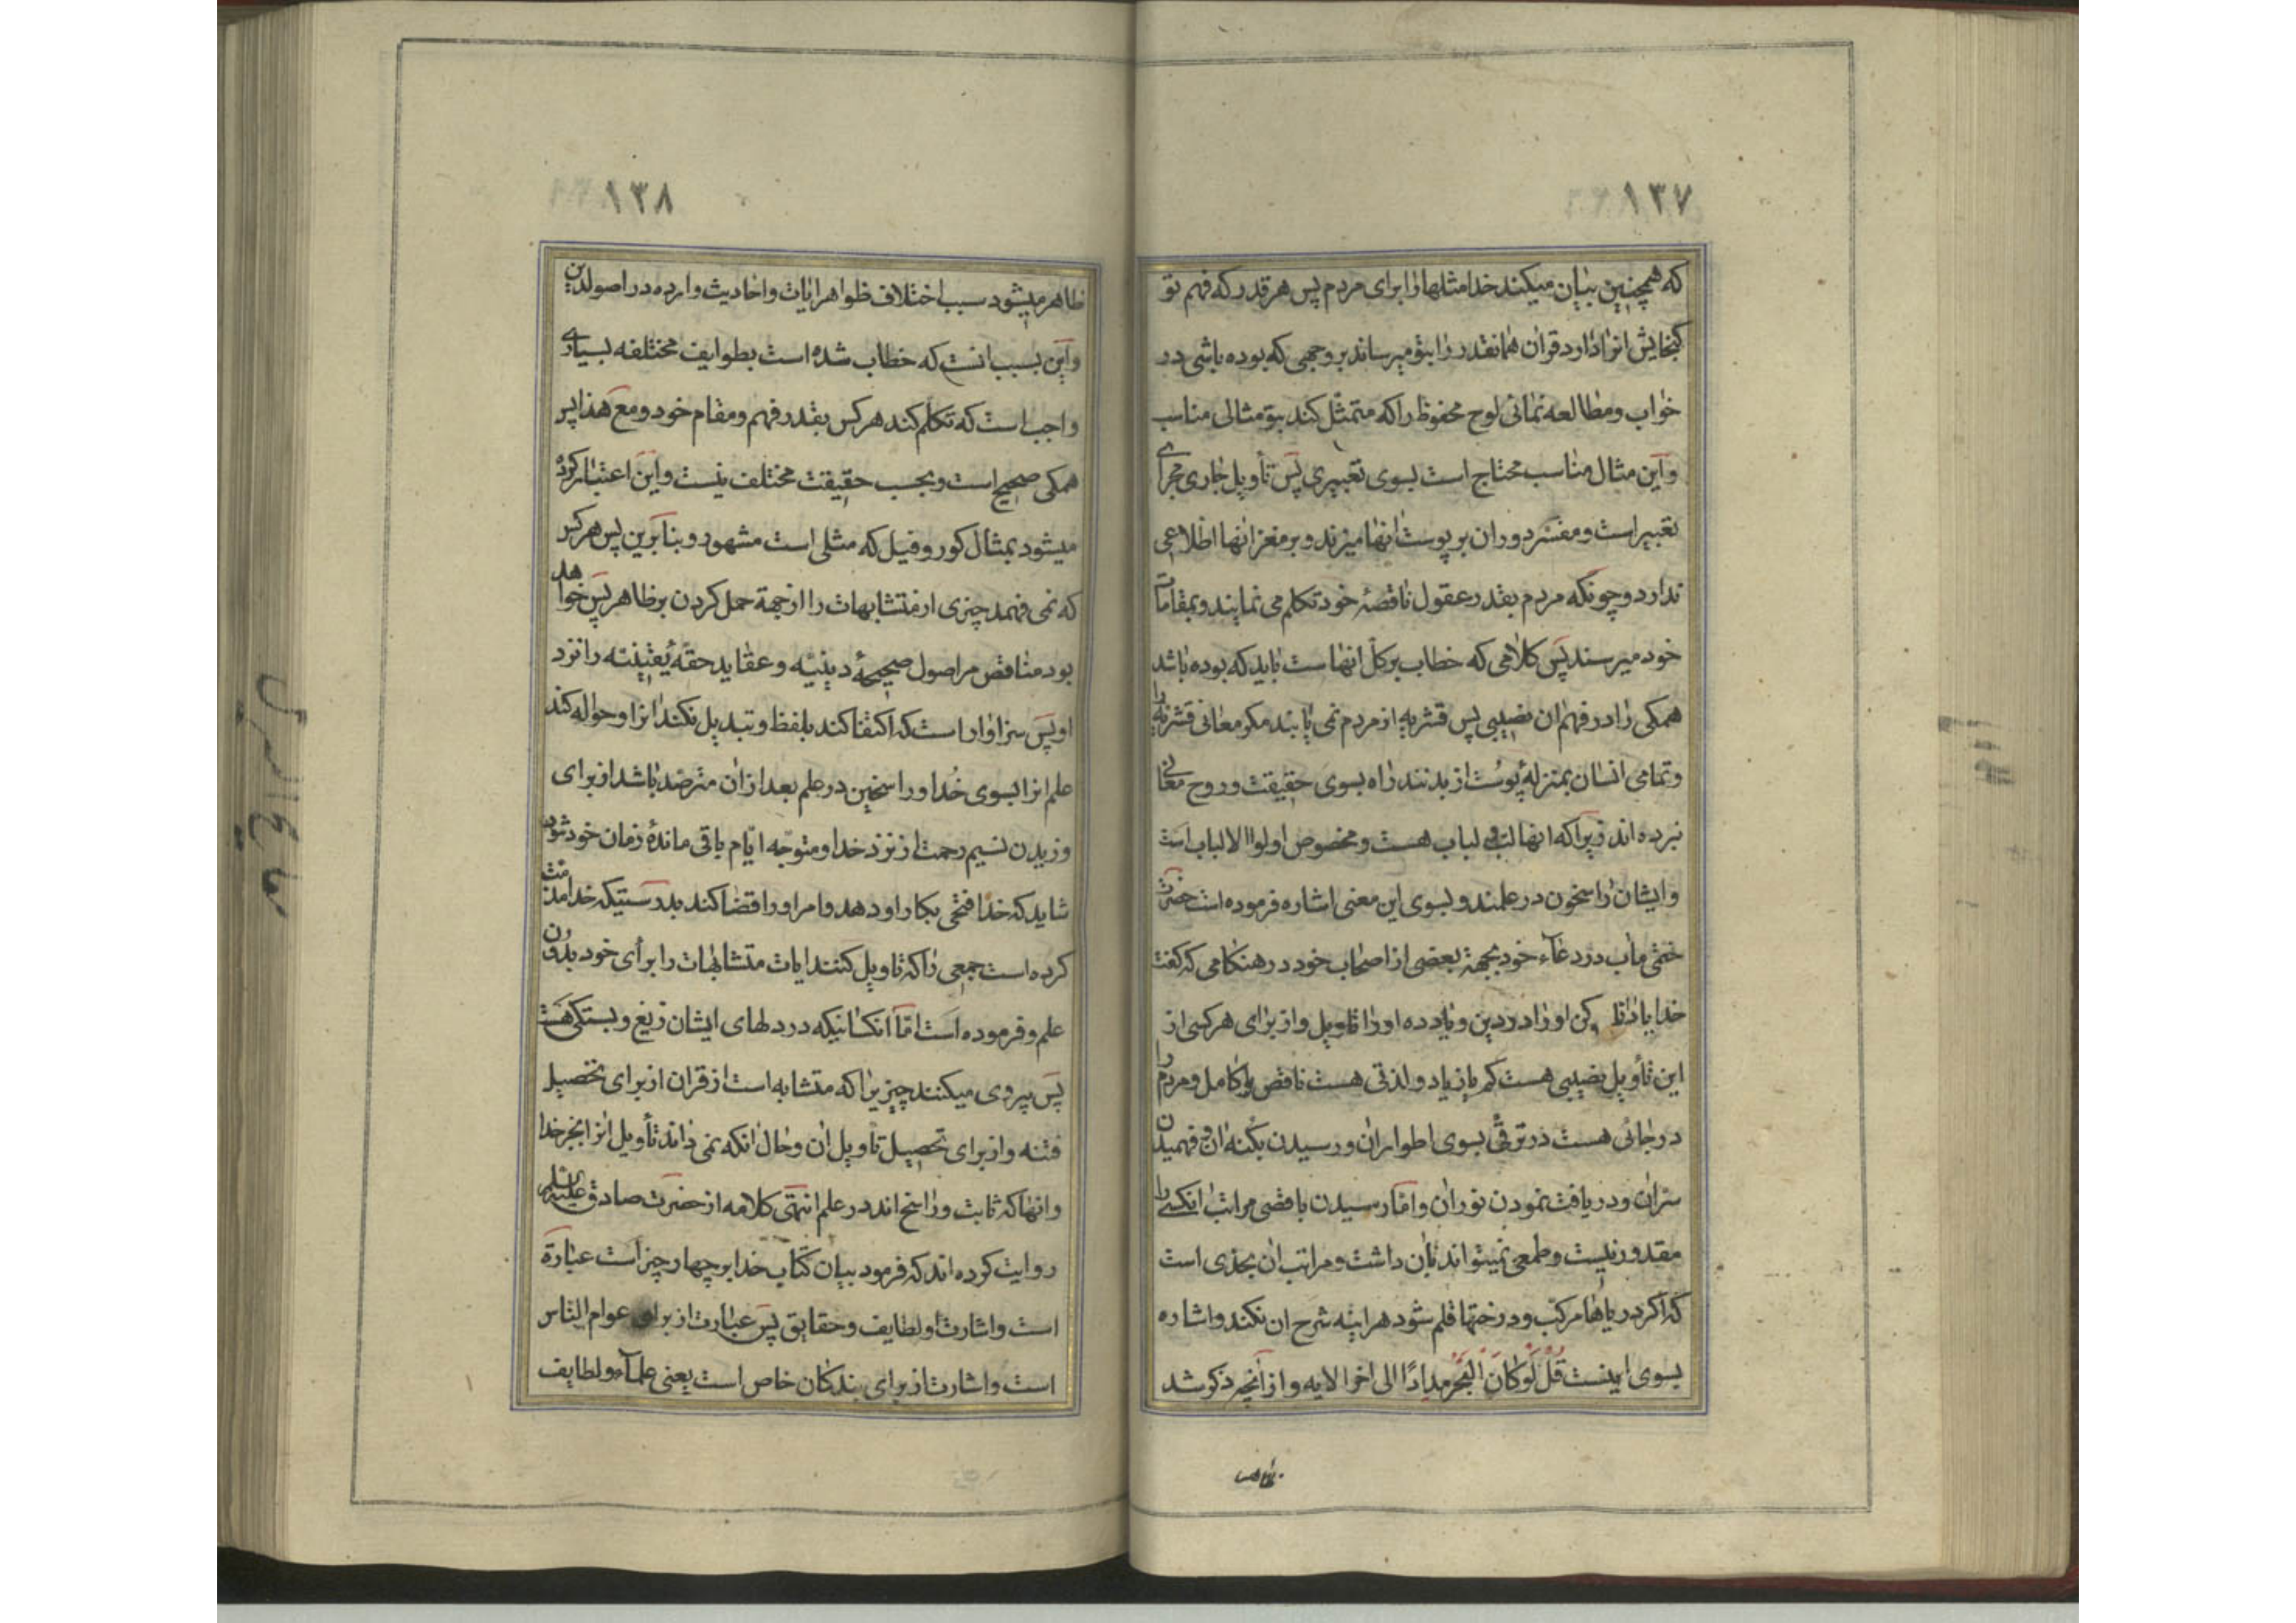 ۱۳۷
که همچنین بیان میکند خدا مثلها را برای مردم پس هر قدر که فهم تو
گنجایش انرا دارد قران همانقدر را بتو میرساند بر وجهی که بوده باشی در
خواب و مطالعه نمائی لوح محفوظ را که متمثل کند بتو مثالی مناسب
و این مثال مناسب محتاج است بسوی تعبیری پس تأویل جاری مجرای
تعبیر است و مفسر دوران بر پوست انها میزند و بر مغز انها اطلاعی
ندارد و چونکه مردم بقدر عقول ناقصهٔ خود تکلم می نمایند و بمقامات
خود میرسند پس کلامی که خطاب بر کل انها است باید که بوده باشد
همکی را در فهم ان نصیبی پس قشریه از مردم نمی یابند مکر معانی قشریه را
و تمامی انسان بمنزلهٔ پوست از بدنند راه بسوی حقیقت و روح معانی
نبرده اند زیرا که انها لب لباب هست و مخصوص اولوا الالباب است
و ایشان راسخون در علمند و بسوی این معنی اشاره فرموده است حضرت
ختمی ماب در دعاء خود بجهة بعضی از اصحاب خود در هنکامی که کفت
خدایا کن او را در دین و یاد ده او را تاویل و از برای هر کسی از
این تأویل نصیبی هست کم یا زیاد و لذتی هست ناقص یا کامل و مردم را
درجاتی هست در ترقی بسوی اطوار ان و رسیدن بکنه ان و فهمیدن
سر ان و دریافت نمودن نور ان و اما رسیدن باقصی مراتب انکسی را
مقدور نیست و طمعی نمیتواند بان داشت و مراتب ان بحدی است
که اکر دریاها مرکب و درختها قلم شود هراینه شرح ان نکند و اشاره
بسوی اینست قُل لَوْ كانَ البَحْرُ مِدادًا الی اخر الایه و از آنچه ذکر شد
ظاهر
۱۳۸
ظاهر میشود سبب اختلاف ظواهر ایات و احادیث وارده در اصول دین
و این بسبب انست که خطاب شده است بطوایف مختلفه بسیاری
واجب است که تکلم کند هر کس بقدر فهم و مقام خود و مع هذا پس
همکی صحیح است و بحسب حقیقت مختلف نیست و این اعتبار کرده
میشود بمثال کور و فیل که مثلی است مشهود و بنا برین پس هر کس
که نمی فهمد چیزی از متشابهات را از جهة حمل کردن بر ظاهر پس خواهد
بود مناقض مر اصول صحیحهٔ دینیه و عقاید حقهٔ یقینیه را نزد
او پس سزاوار است که اکتفا کند بلفظ و تبدیل نکند انرا و حواله کند
علم انرا بسوی خُدا و راسخین در علم بعد از ان مترصد باشد از برای
وزیدن نسیم رحمت از نزد خدا و متوجه ایام باقی ماندهٔ زمان خود شود
شاید که خدا فتحی بکار او دهد و امر او را قضا کند بدرستیکه خدا مذمت
کرده است جمعی را که تاویل کنند ایات متشابهات را برأی خود بدون
علم و فرموده است اما انکسانیکه در دلهای ایشان زیغ و بستکی هست
پس پیروی میکنند چیزیرا که متشابه است از قران از برای تحصیل
فتنه و از برای تحصیل تاویل ان و حال انکه نمی داند تأویل انرا بجز خدا
و انها که ثابت و راسخ اند در علم انتهی کلامه از حضرت صادق علیه السلم
روایت کرده اند که فرمود بیان کتاب خدا بر چهار چیز است عبارة
است و اشارت و لطایف و حقایق پس عبارت از برای عوام الناس
است و اشارت از برای بندکان خاص است یعنی علماء و لطایف